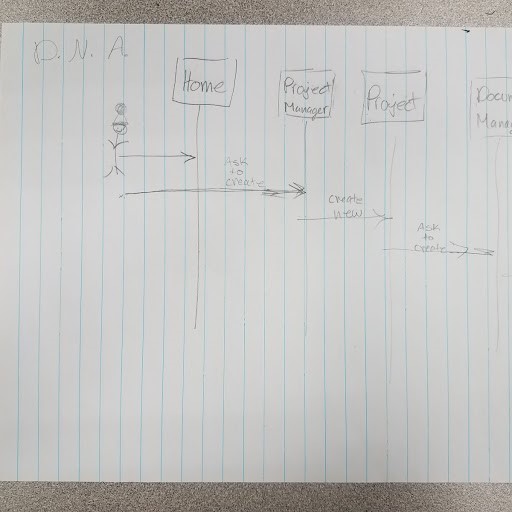 D. N. A.
Home
Project
Manager
Project
Docum
Manag
Ask
to
create
create
new
Ask
to
create